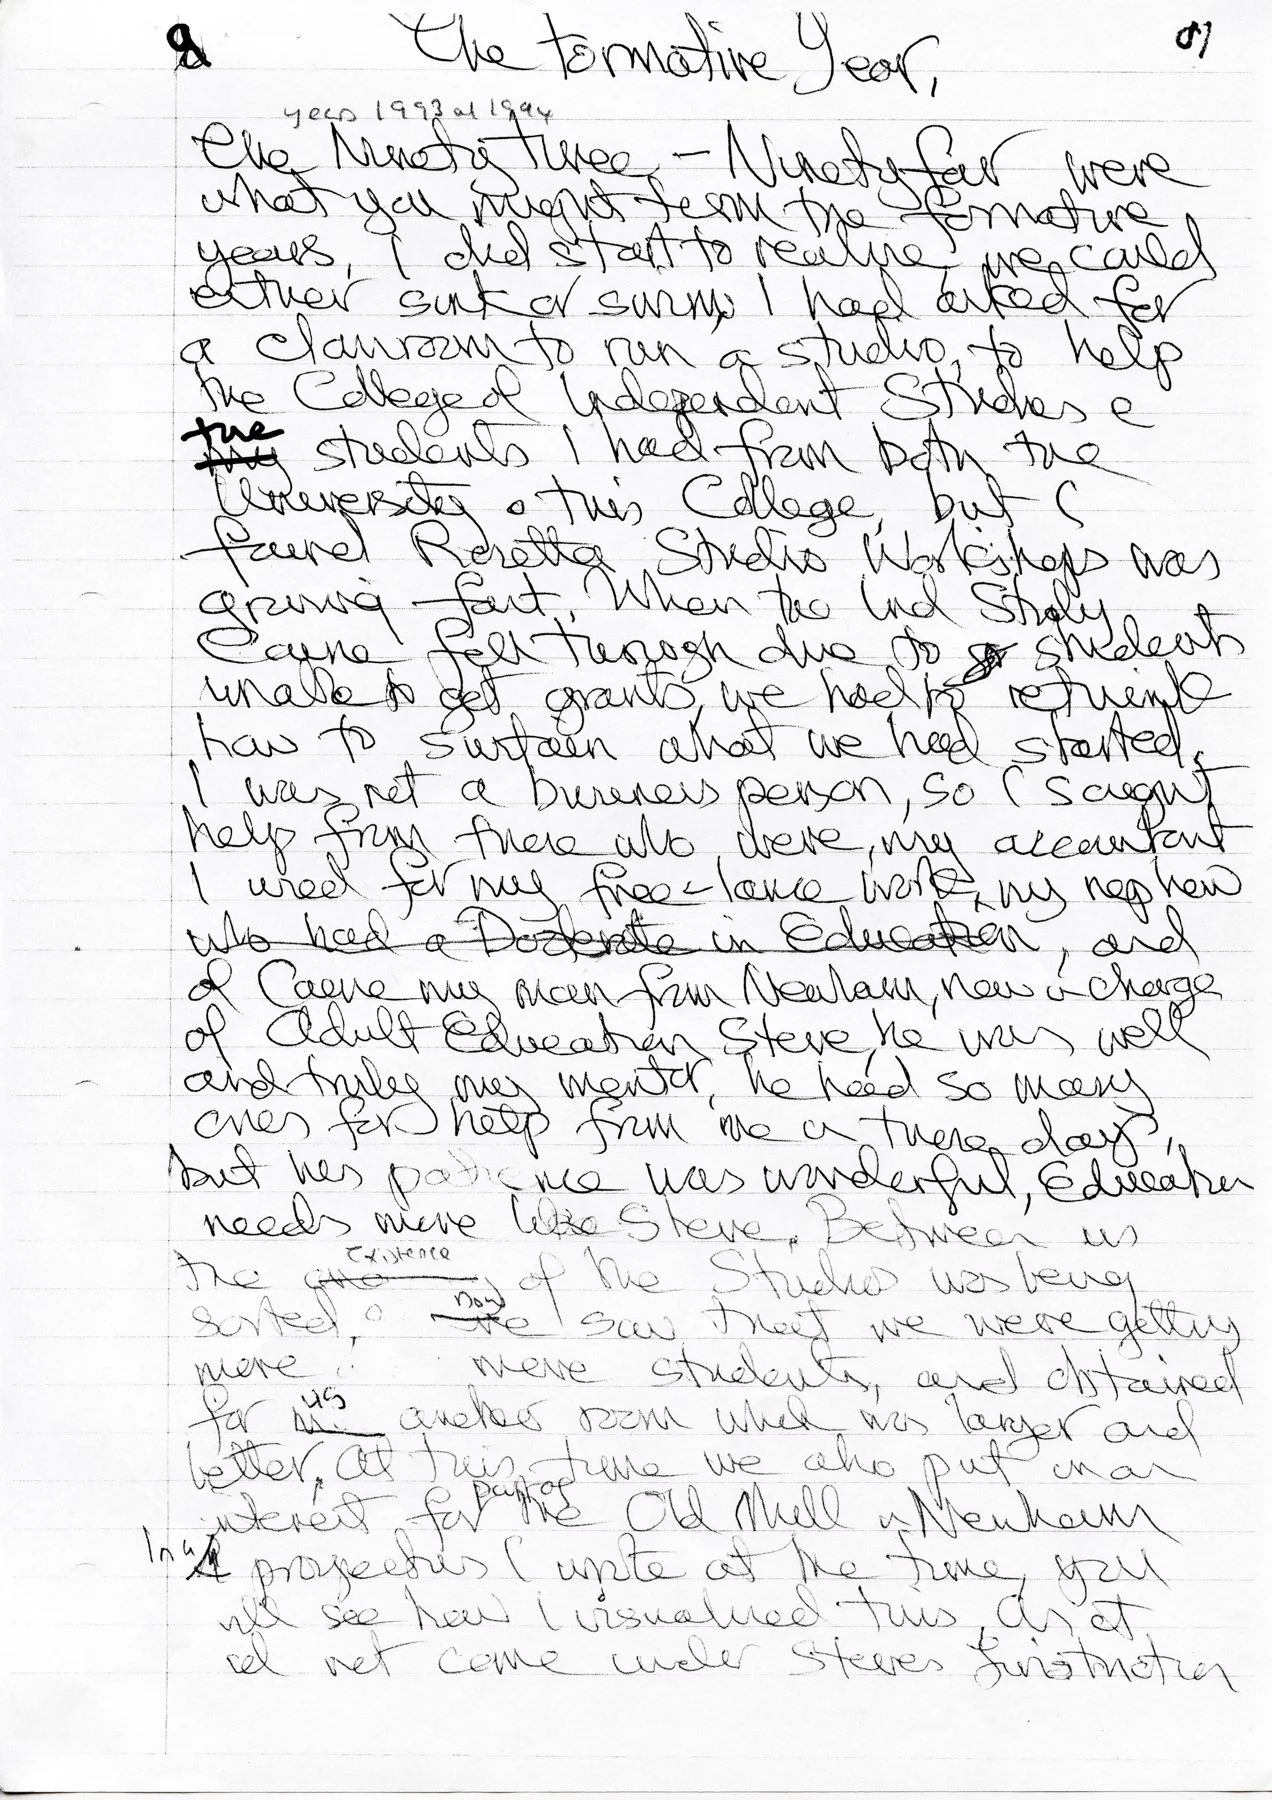 The Formative Year,
years 1993 at 1994
The Ninety three - Ninety four were
what you might term the formative
years, I did start to realise we could
either sink or swim, I had asked for
a classroom to run a studio, to help
the College of Independent Studies &
the my students I had from both the
University & this College, but I
found Rosetta Studio Workshops was
growing fast. When the Ind Study
Course fell through due to students
unable to get grants, we had to rethink
how to sustain what we had started.
I was not a business person, so I sought
help from those who were, my accountant
I used for my free-lance work, my nephew
who had a in Education, and
of Course my man from Newham, now in charge
of Adult Education Steve, he was well
and truly my mentor, he had so many
cries for help from me in those days,
but his patience was wonderful, Education
needs more like Steve. Between us
the existence of the Studios was being
sorted, Now we saw that we were getting
more more students, and obtained
for us another room which was larger and
better. At this time we also put in an
interest for part of the Old Mill in Newham
In a prospectus I wrote at the time, you
will see how I visualised this, As it
did not come under Steves